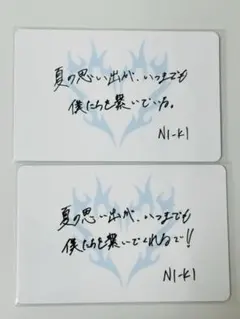 夏の思い出が、いつまでも
僕たちを繋いでいる。
NI-KI
夏の思い出が、いつまでも
僕たちを繋いでくれるで!!
NI-KI